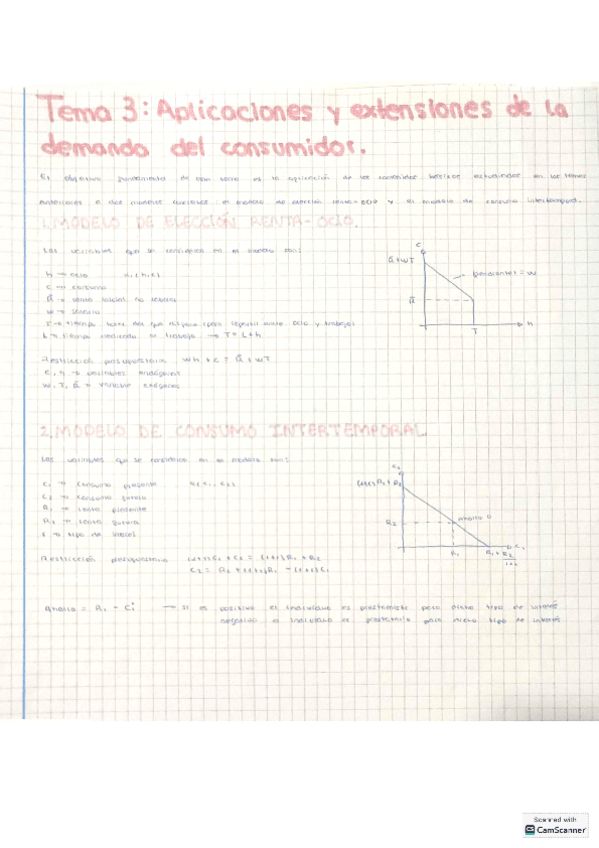 Tema 3: Aplicaciones y extensiones de la
demanda del consumidor.
El objetivo fundamental de este tema es la aplicación de los contenidos básicos estudiados en los temas
anteriores a dos modelos el modelo de elección renta-ocio y el modelo de consumo intertemporal.
1. MODELO DE ELECCIÓN RENTA-OCIO.
Las variables que se consideran en el modelo son:
h → ocio u(h,c)
c → consumo
R̄ → renta inicial no salarial
w → salario
T → tiempo total del que dispone para repartir entre ocio y trabajo
L → tiempo dedicado al trabajo → T = L+h
Restricción presupuestaria wh + c = R̄ + wT
c, h → variables endógenas
w, T, R̄ → variable exógenas
c
R̄+wT
pendiente = w
R̄
T
h
2. MODELO DE CONSUMO INTERTEMPORAL
Las variables que se consideran en el modelo son:
C₁ → consumo presente u(c₁, c₂)
C₂ → consumo futuro
R₁ → renta presente
R₂ → renta futura
i → tipo de interés
Restricción presupuestaria (1+i)C₁ + C₂ = (1+i)R₁ + R₂
C₂ = R₂ + (1+i)R₁ - (1+i)C₁
C₂
(1+i)R₁ + R₂
R₂
ahorro 0
R₁
R₁ + R₂/1+i
C₁
Ahorro = R₁ - C₁* → si es positivo el individuo es prestamista para dicho tipo de interés
negativo el individuo es prestatario para dicho tipo de interés
Scanned with
CamScanner